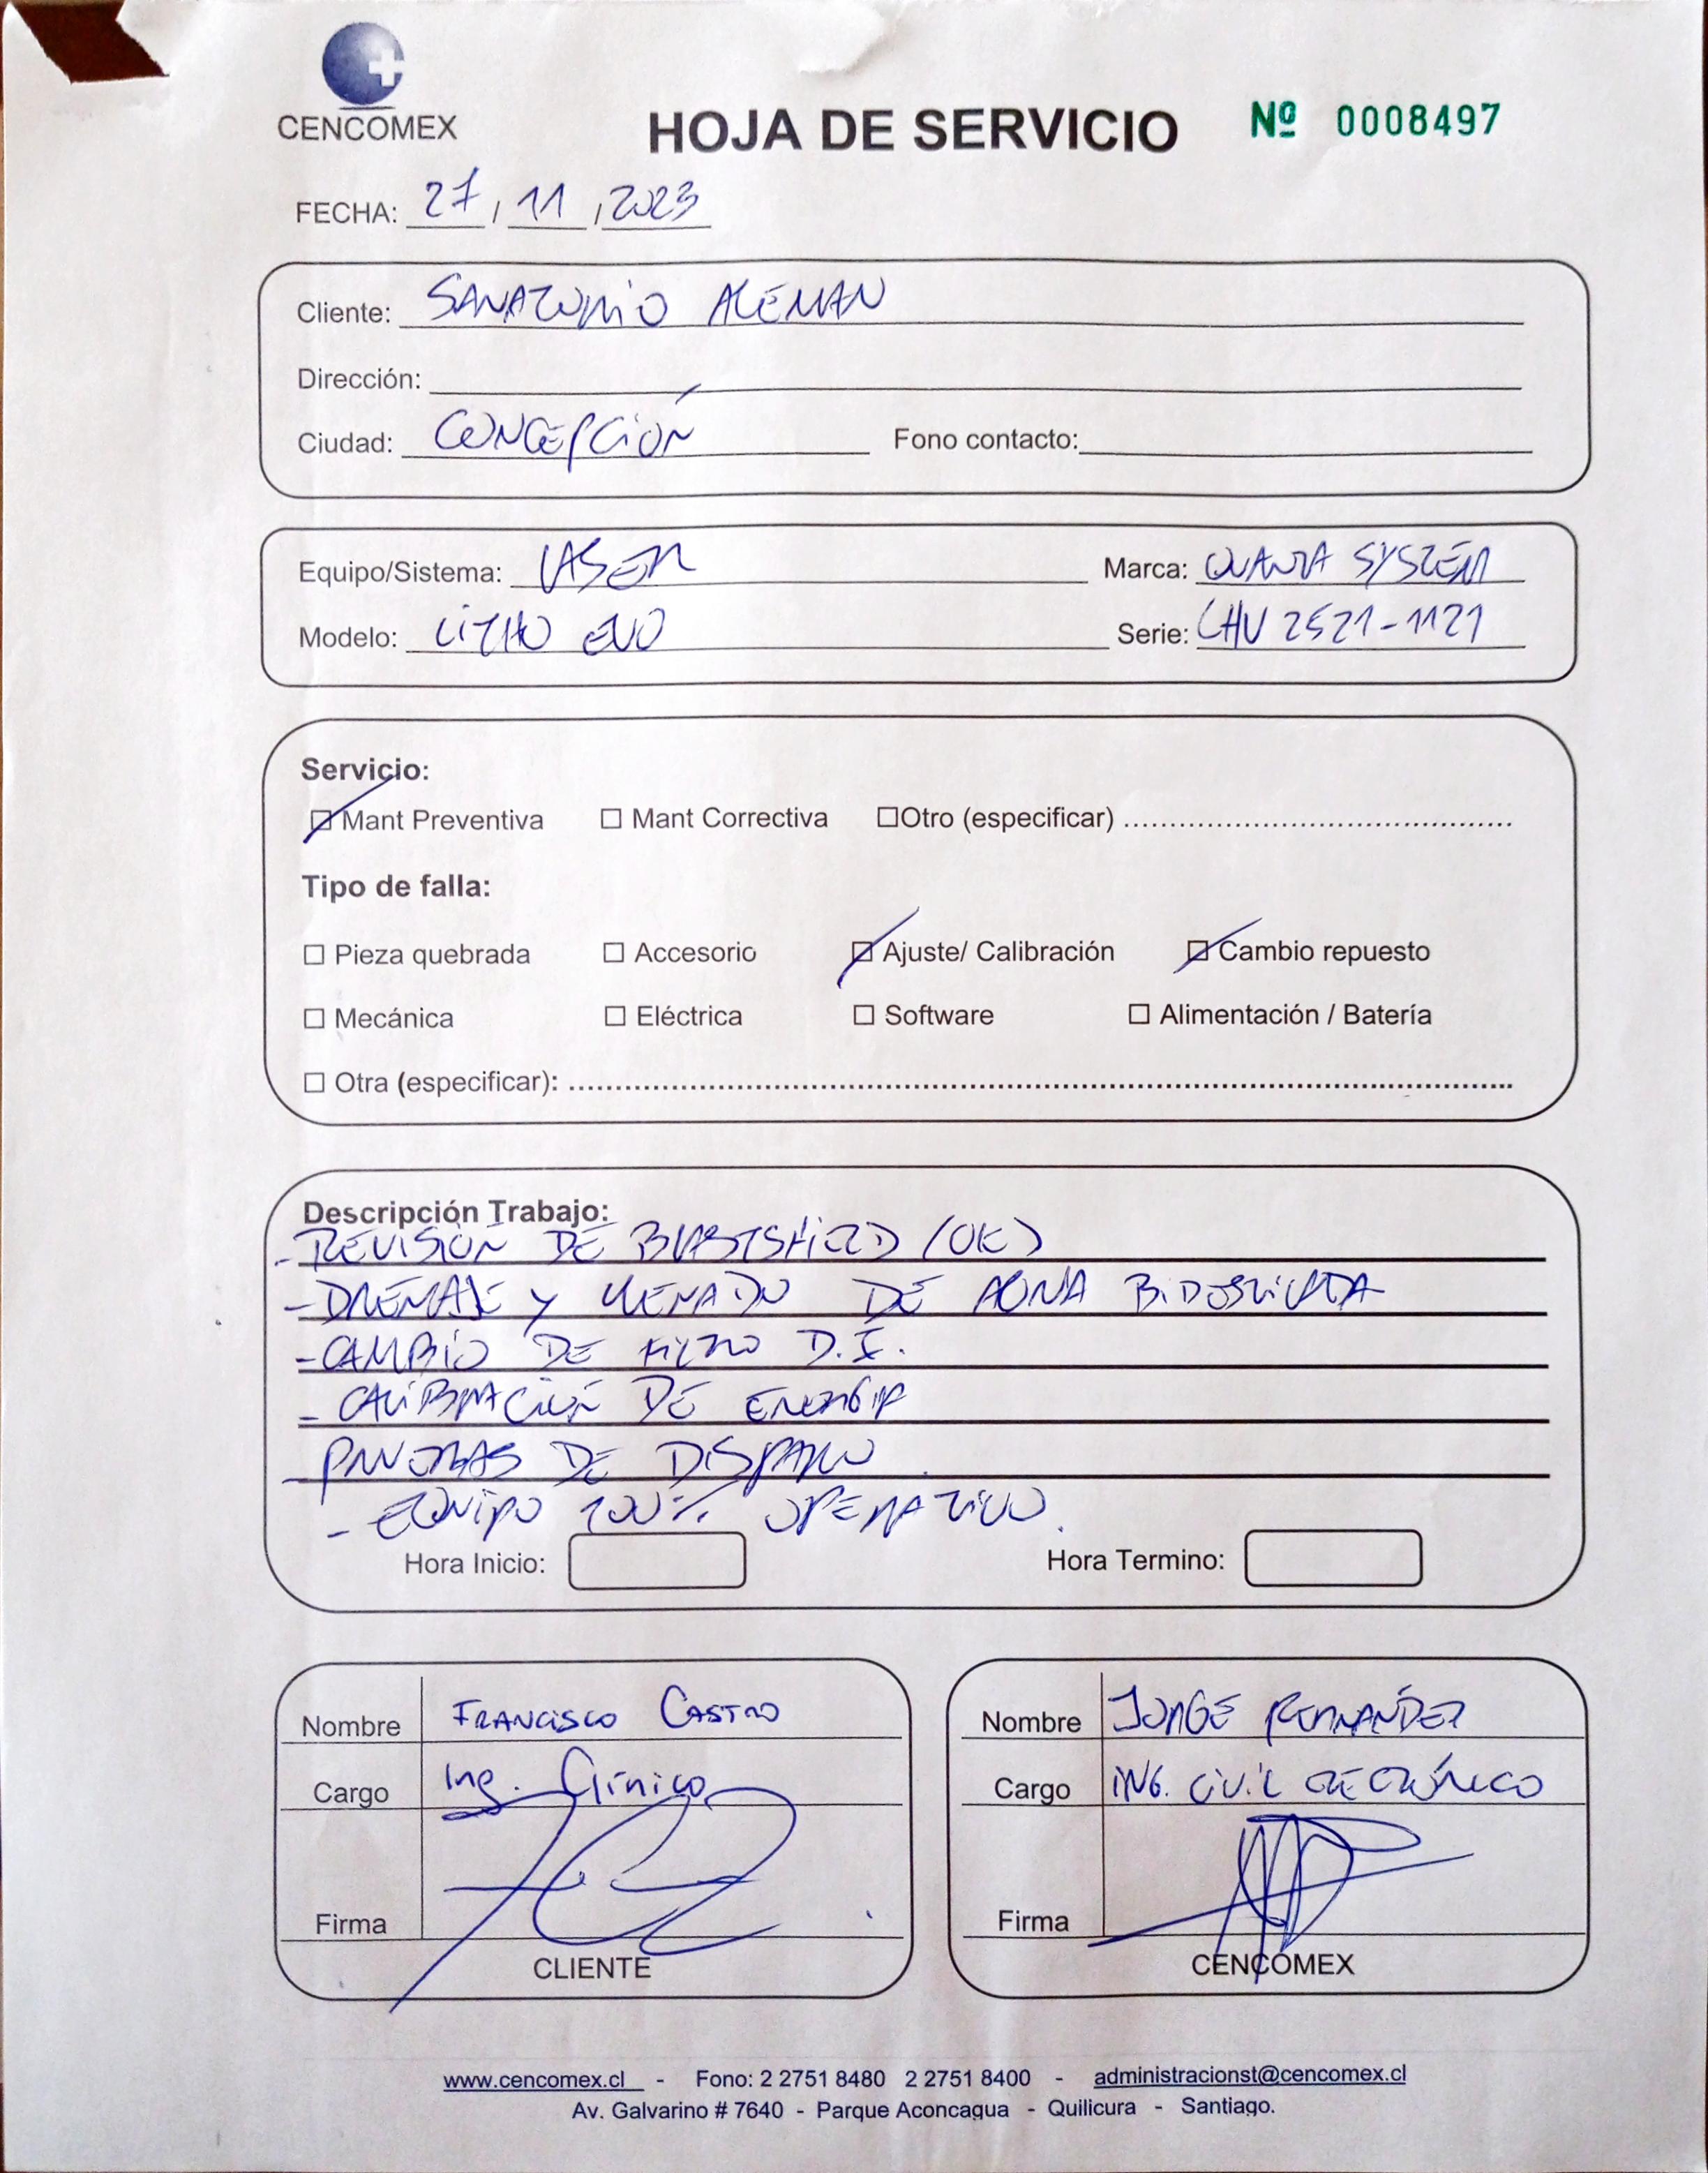 CENCOMEX
HOJA DE SERVICIO Nº 0008497
FECHA: 27 / 11 / 2023
Cliente: SANATORIO ALEMAN
Dirección:
Ciudad: CONCEPCIÓN Fono contacto:
Equipo/Sistema: LASER Marca: QUANTA SYSTEM
Modelo: LITHO EVO Serie: LHV 2521-1121
Servicio:
Mant Preventiva Mant Correctiva Otro (especificar) ............................................
Tipo de falla:
Pieza quebrada Accesorio Ajuste/ Calibración Cambio repuesto
Mecánica Eléctrica Software Alimentación / Batería
Otra (especificar): ............................................................
Descripción Trabajo:
- REVISIÓN DE BLASTSHIELD (OK)
- DRENAJE Y LLENADO DE AGUA BIDESTILADA
- CAMBIO DE FILTRO D.I.
- CALIBRACIÓN DE ENERGÍA
- PRUEBAS DE DISPARO
- EQUIPO 100% OPERATIVO.
Hora Inicio: Hora Termino:
Nombre FRANCISCO CASTRO
Cargo Ing. Clínico
Firma
CLIENTE
Nombre JORGE FERNÁNDEZ
Cargo ING. CIVIL ELECTRÓNICO
Firma
CENCOMEX
www.cencomex.cl - Fono: 2 2751 8480 2 2751 8400 - administracionst@cencomex.cl
Av. Galvarino # 7640 - Parque Aconcagua - Quilicura - Santiago.